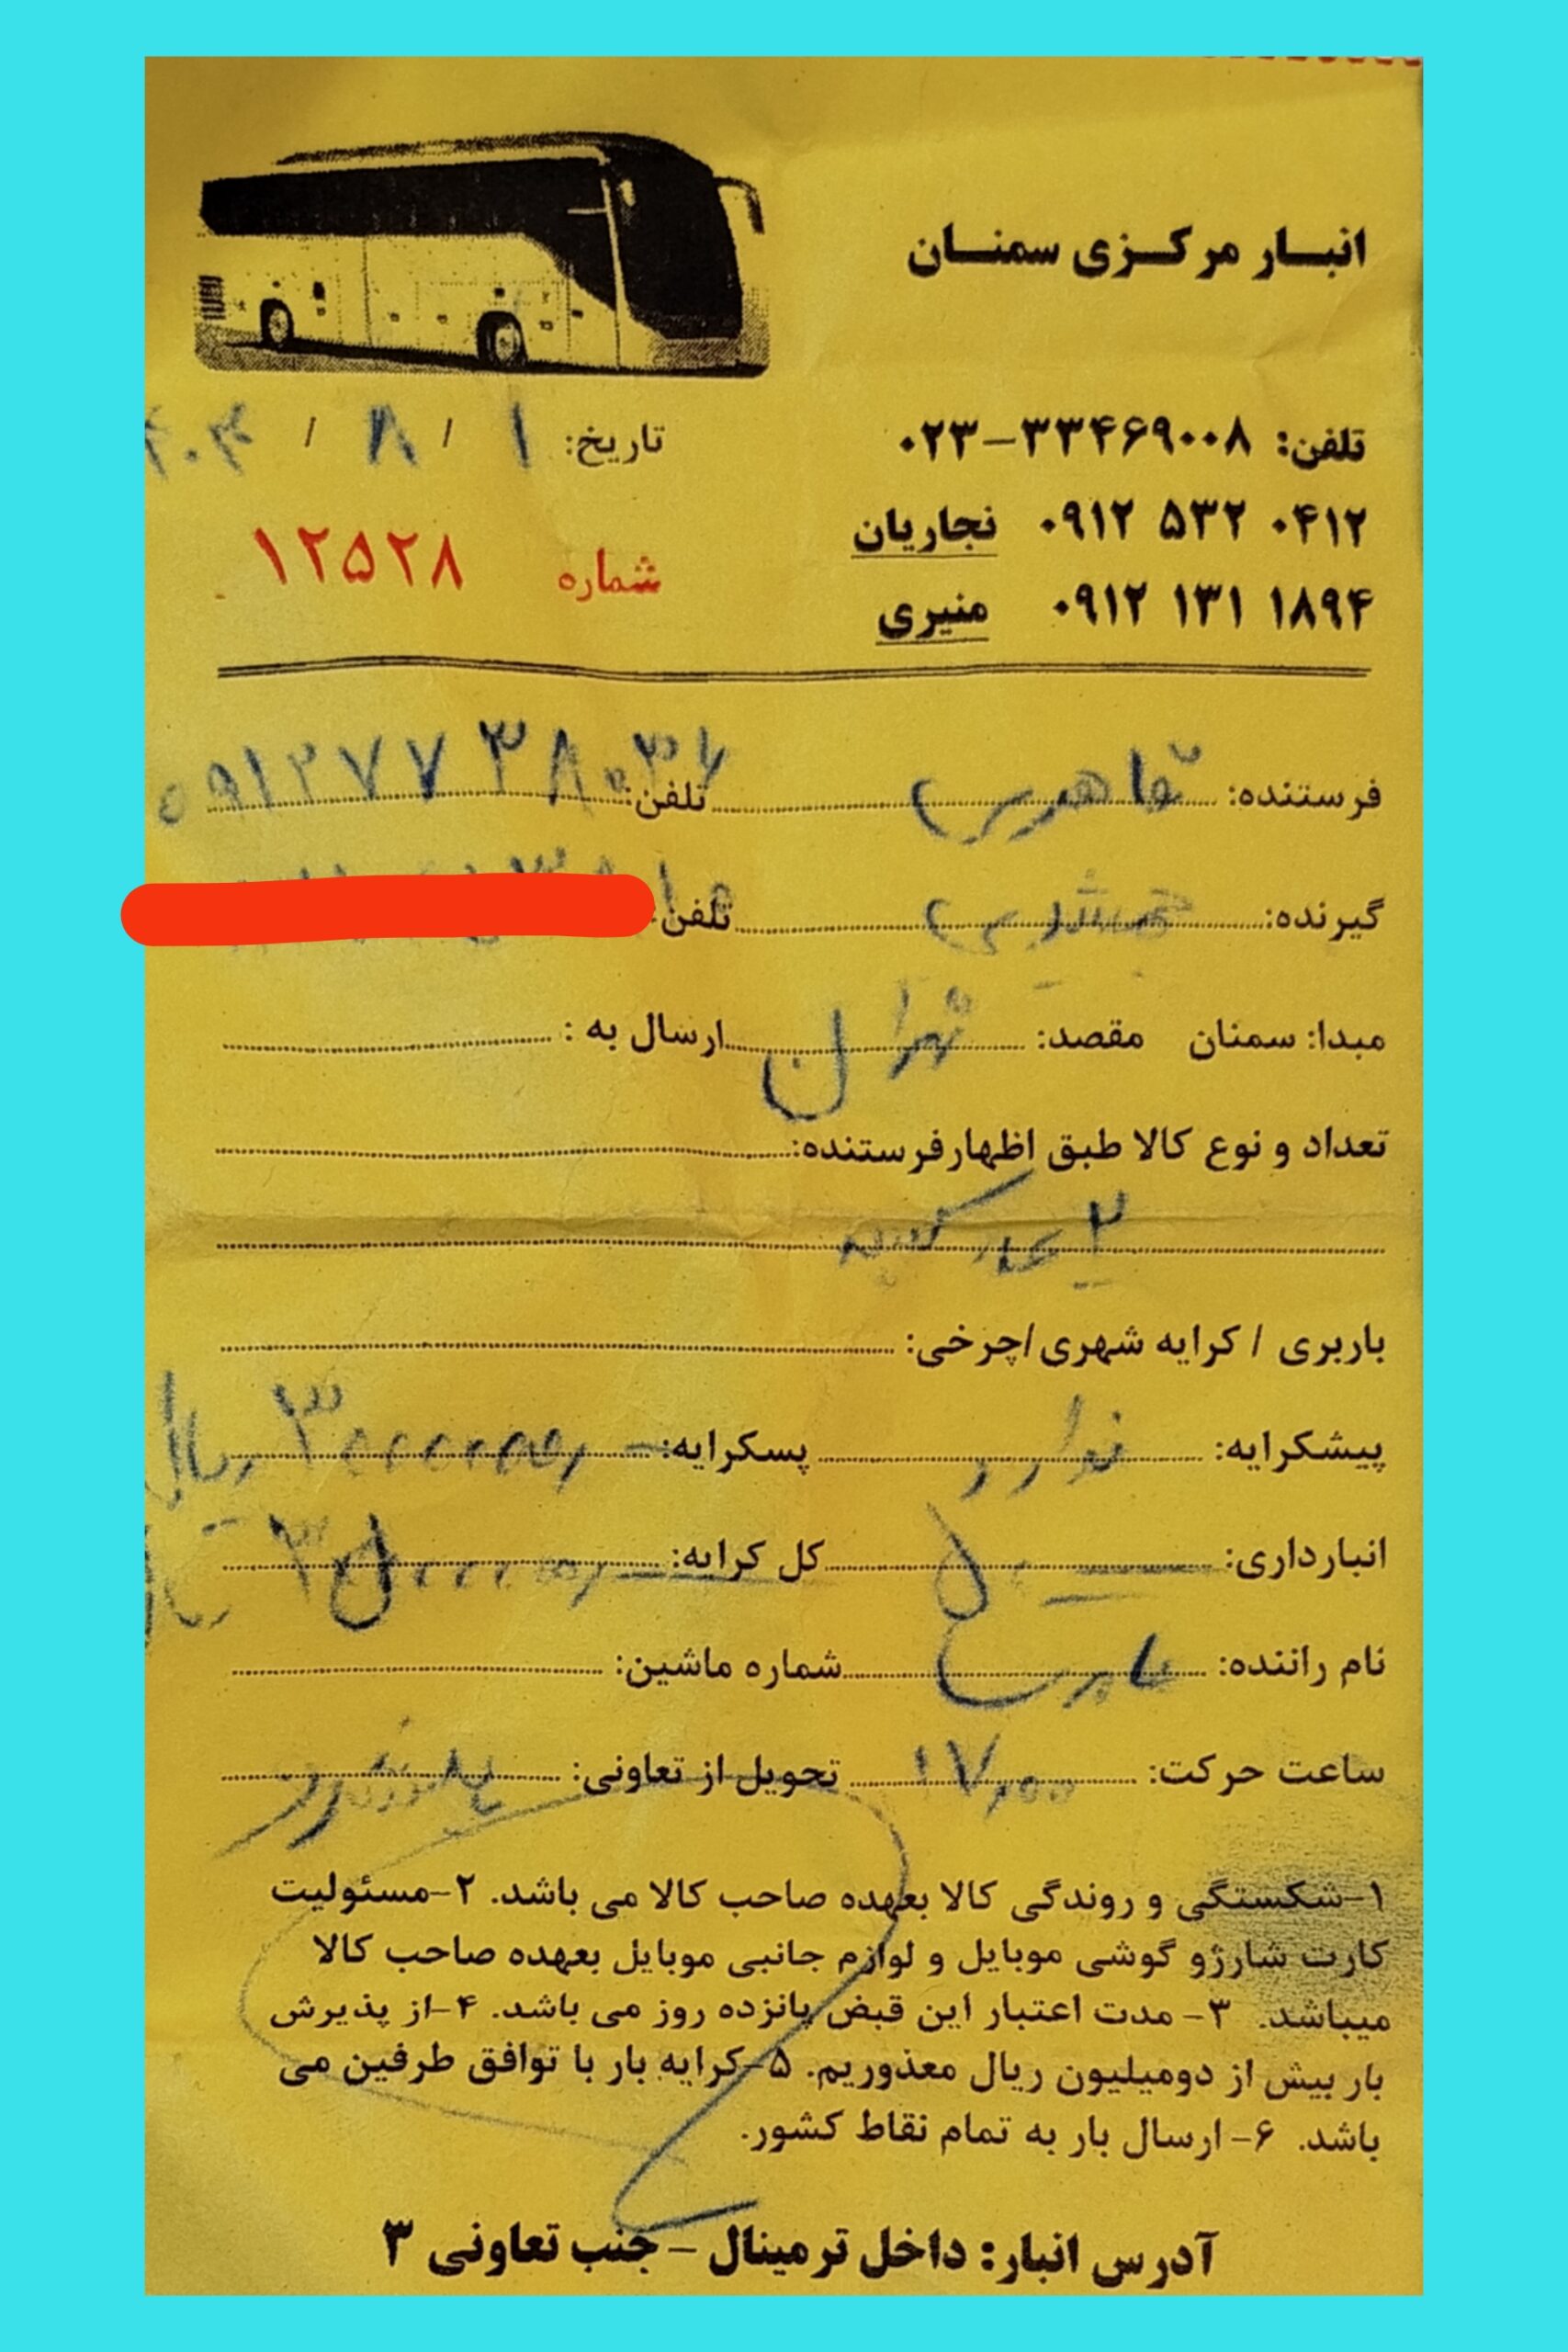 انبار مرکزی سمنان
تلفن: ۰۲۳-۳۳۴۶۹۰۰۸
۰۹۱۲ ۵۳۲ ۰۴۱۲ نجاریان
۰۹۱۲ ۱۳۱ ۱۸۹۴ منیری
تاریخ: ۱ / ۸ / ۴۰۳
شماره ۱۲۵۲۸
فرستنده: تلفن:
گیرنده: جمشیدی تلفن:
مبدا: سمنان مقصد: تهران ارسال به :
تعداد و نوع کالا طبق اظهارفرستنده:
۲
باربری / کرایه شهری/چرخی:
پیشکرایه: ندارد پسکرایه: ریال
انبارداری: کل کرایه: ریال
نام راننده: شماره ماشین:
ساعت حرکت: ۱۷,۰۰ تحویل از تعاونی:
۱-شکستگی و روندگی کالا بعهده صاحب کالا می باشد. ۲-مسئولیت
کارت شارژو گوشی موبایل و لوازم جانبی موبایل بعهده صاحب کالا
میباشد. ۳- مدت اعتبار این قبض پانزده روز می باشد. ۴-از پذیرش
بار بیش از دومیلیون ریال معذوریم. ۵-کرایه بار با توافق طرفین می
باشد. ۶- ارسال بار به تمام نقاط کشور.
آدرس انبار: داخل ترمینال - جنب تعاونی ۳